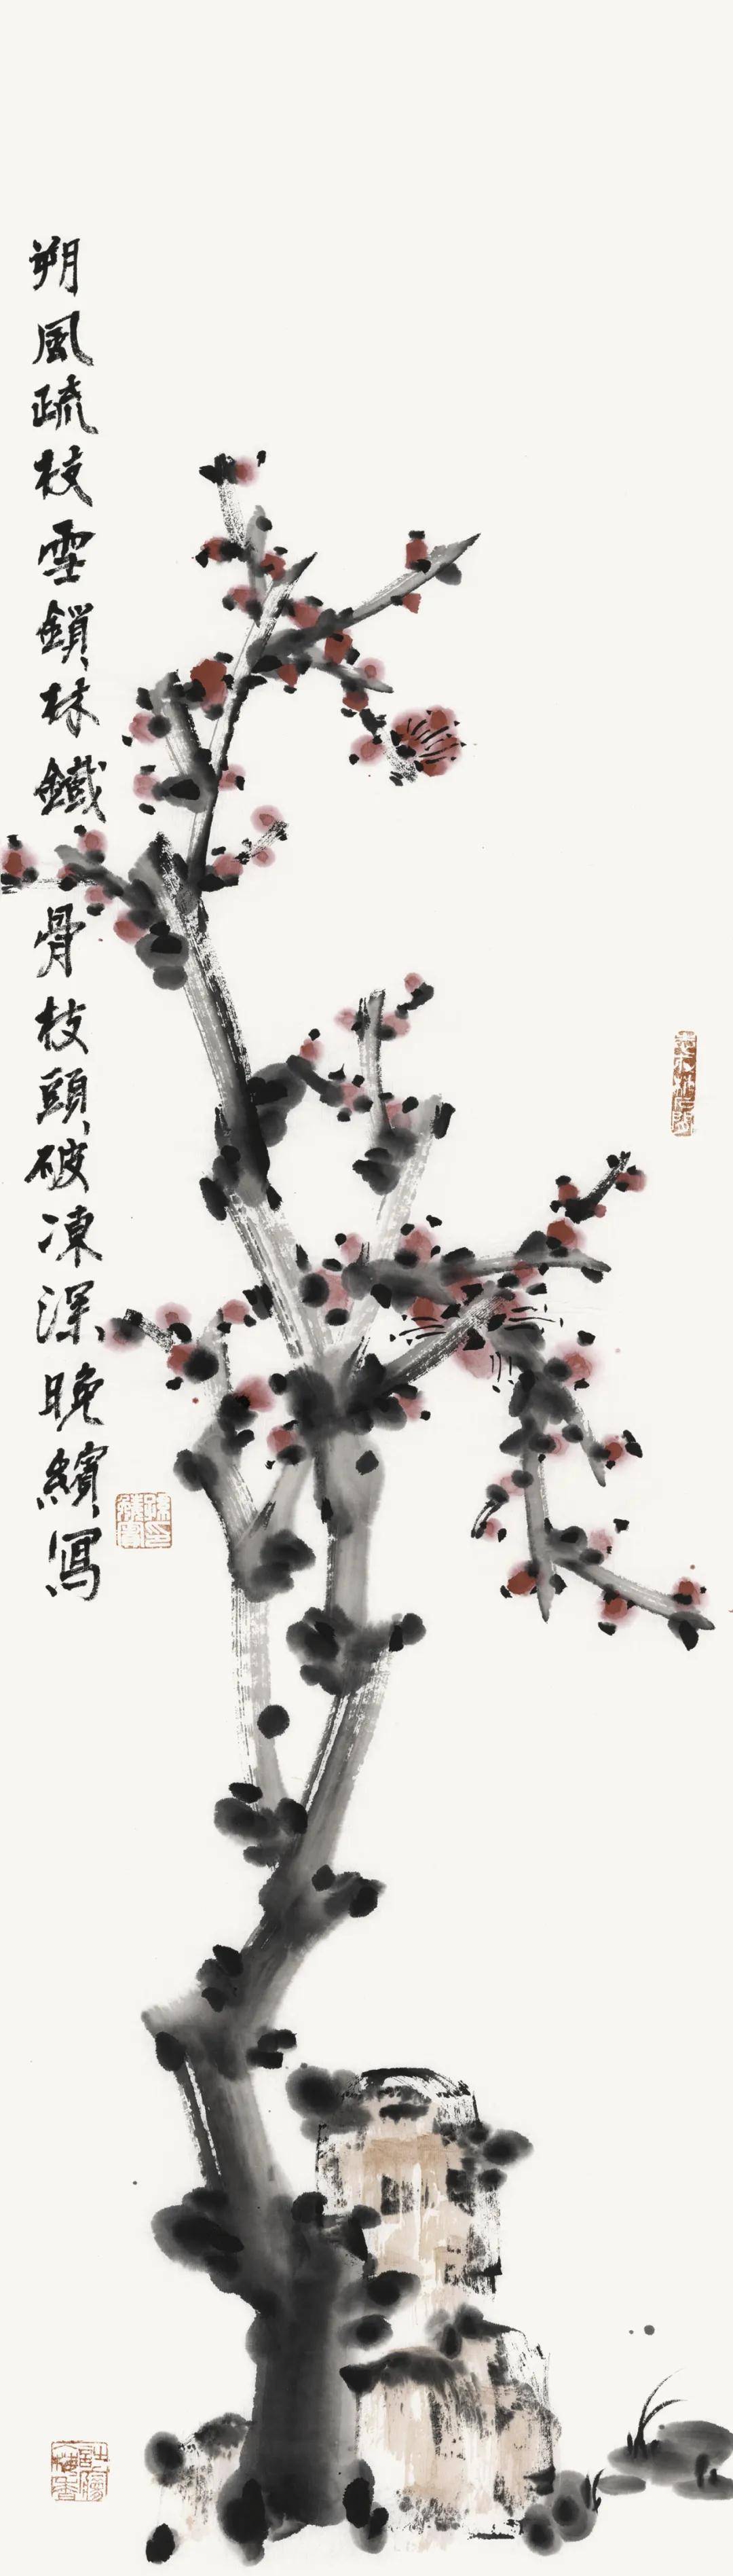 朔風疏枝雪鎖林鐵骨枝頭破凍深晚繽寫